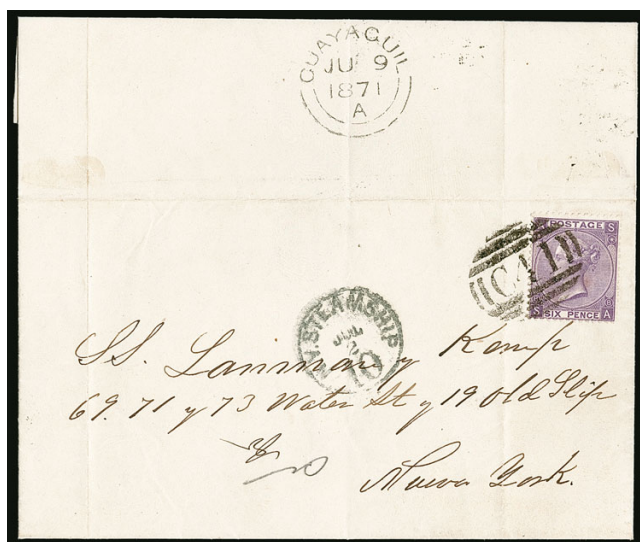 GUAYAQUIL
JU 9
1871
A
POSTAGE S
C41
S SIX PENCE A
N.Y. STEAMSHIP
JUL
10
SS. Lanman y Kemp
69. 71 y 73 Water St y 19 Old Slip
Nueva York.